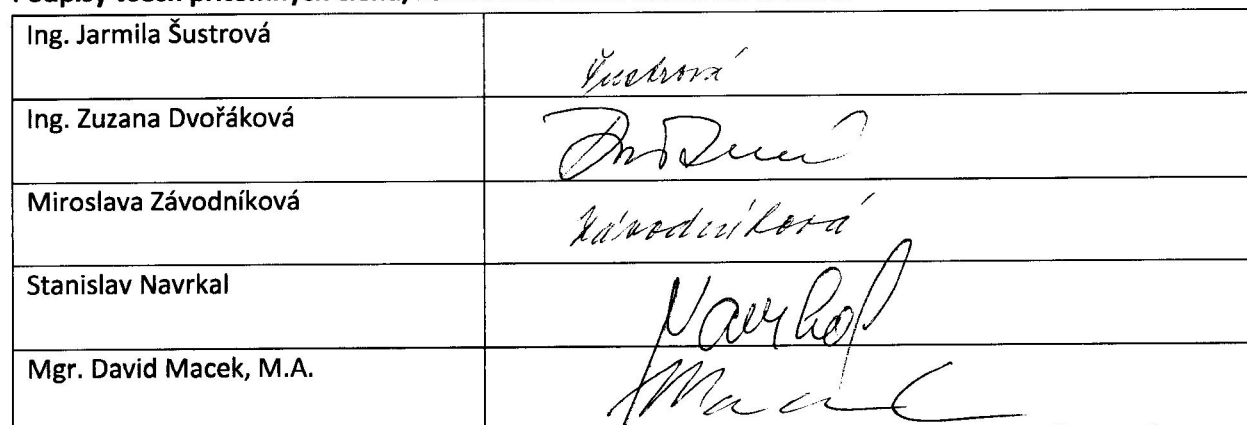 Podpisy všech přítomných
Ing. Jarmila Šustrová
Šustrová
Ing. Zuzana Dvořáková
Miroslava Závodníková
Závodníková
Stanislav Navrkal
Navrkal
Mgr. David Macek, M.A.
Macek